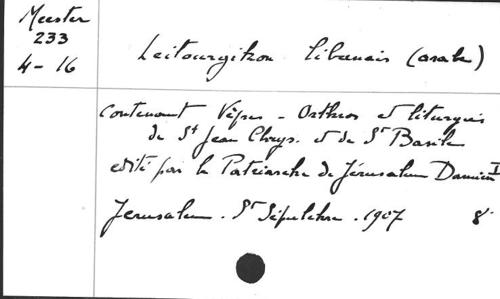 Meester
233
4-16
Leitourgikon libanais (arabe)
contenant Vêpres - Orthros et liturgies
de St Jean Chrys. et de St Basile
edité par le Patriarche de Jérusalem Damien I
Jerusalem. St Sépulchre. 1907 8°